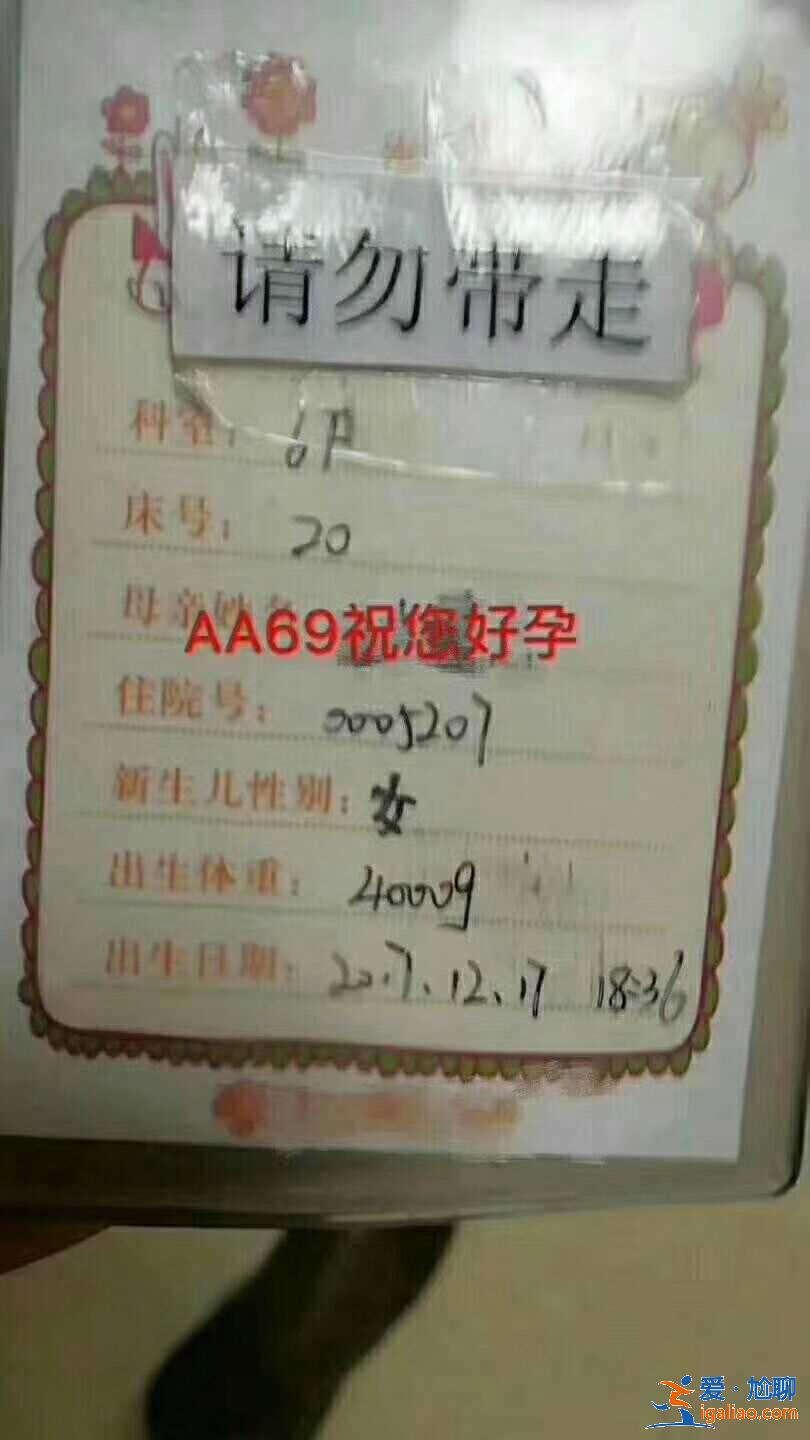 请勿带走
科室：6户
床号：20
母亲姓名
AA69祝您好孕
住院号：0005207
新生儿性别：女
出生体重：4000g
出生日期：2017、12、17 18:36
爱·尬聊
igaliao.com